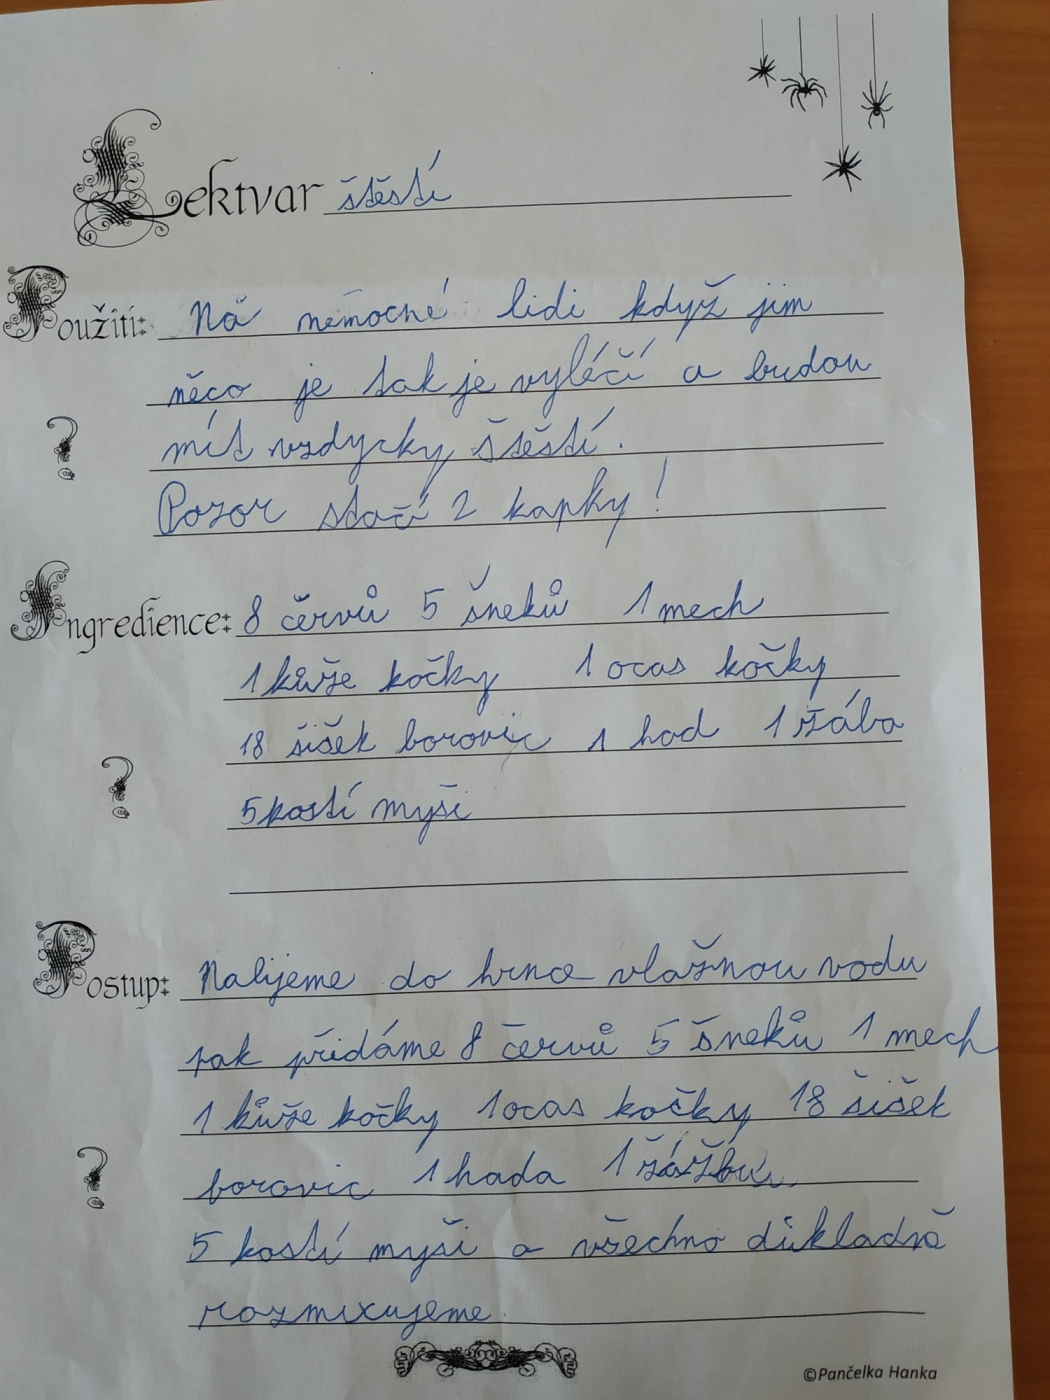 Lektvar štěstí
Použití: Na nemocné lidi když jim
něco je tak je vyléčí a budou
mít vzdycky štěstí.
Pozor stačí 2 kapky!
Ingredience: 8 červů 5 šneků 1 mech
1 kůže kočky 1 ocas kočky
18 šišek borovic 1 had 1 žába
5 kostí myši
Postup: Nalijeme do hrnce vlažnou vodu
pak přidáme 8 červů 5 šneků 1 mech
1 kůže kočky 1 ocas kočky 18 šišek
borovic 1 hada 1
5 kostí myši a všechno důkladně
rozmixujeme.
©Pančelka Hanka